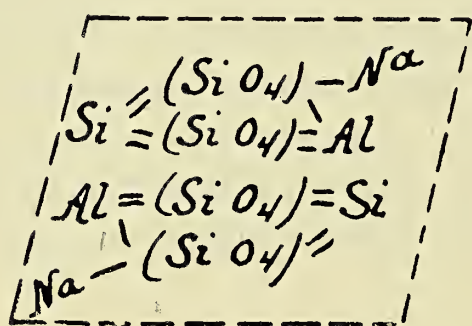 (Si O4) – Na
Si = (Si O4) = Al
Al = (Si O4) = Si
Na – (Si O4) =